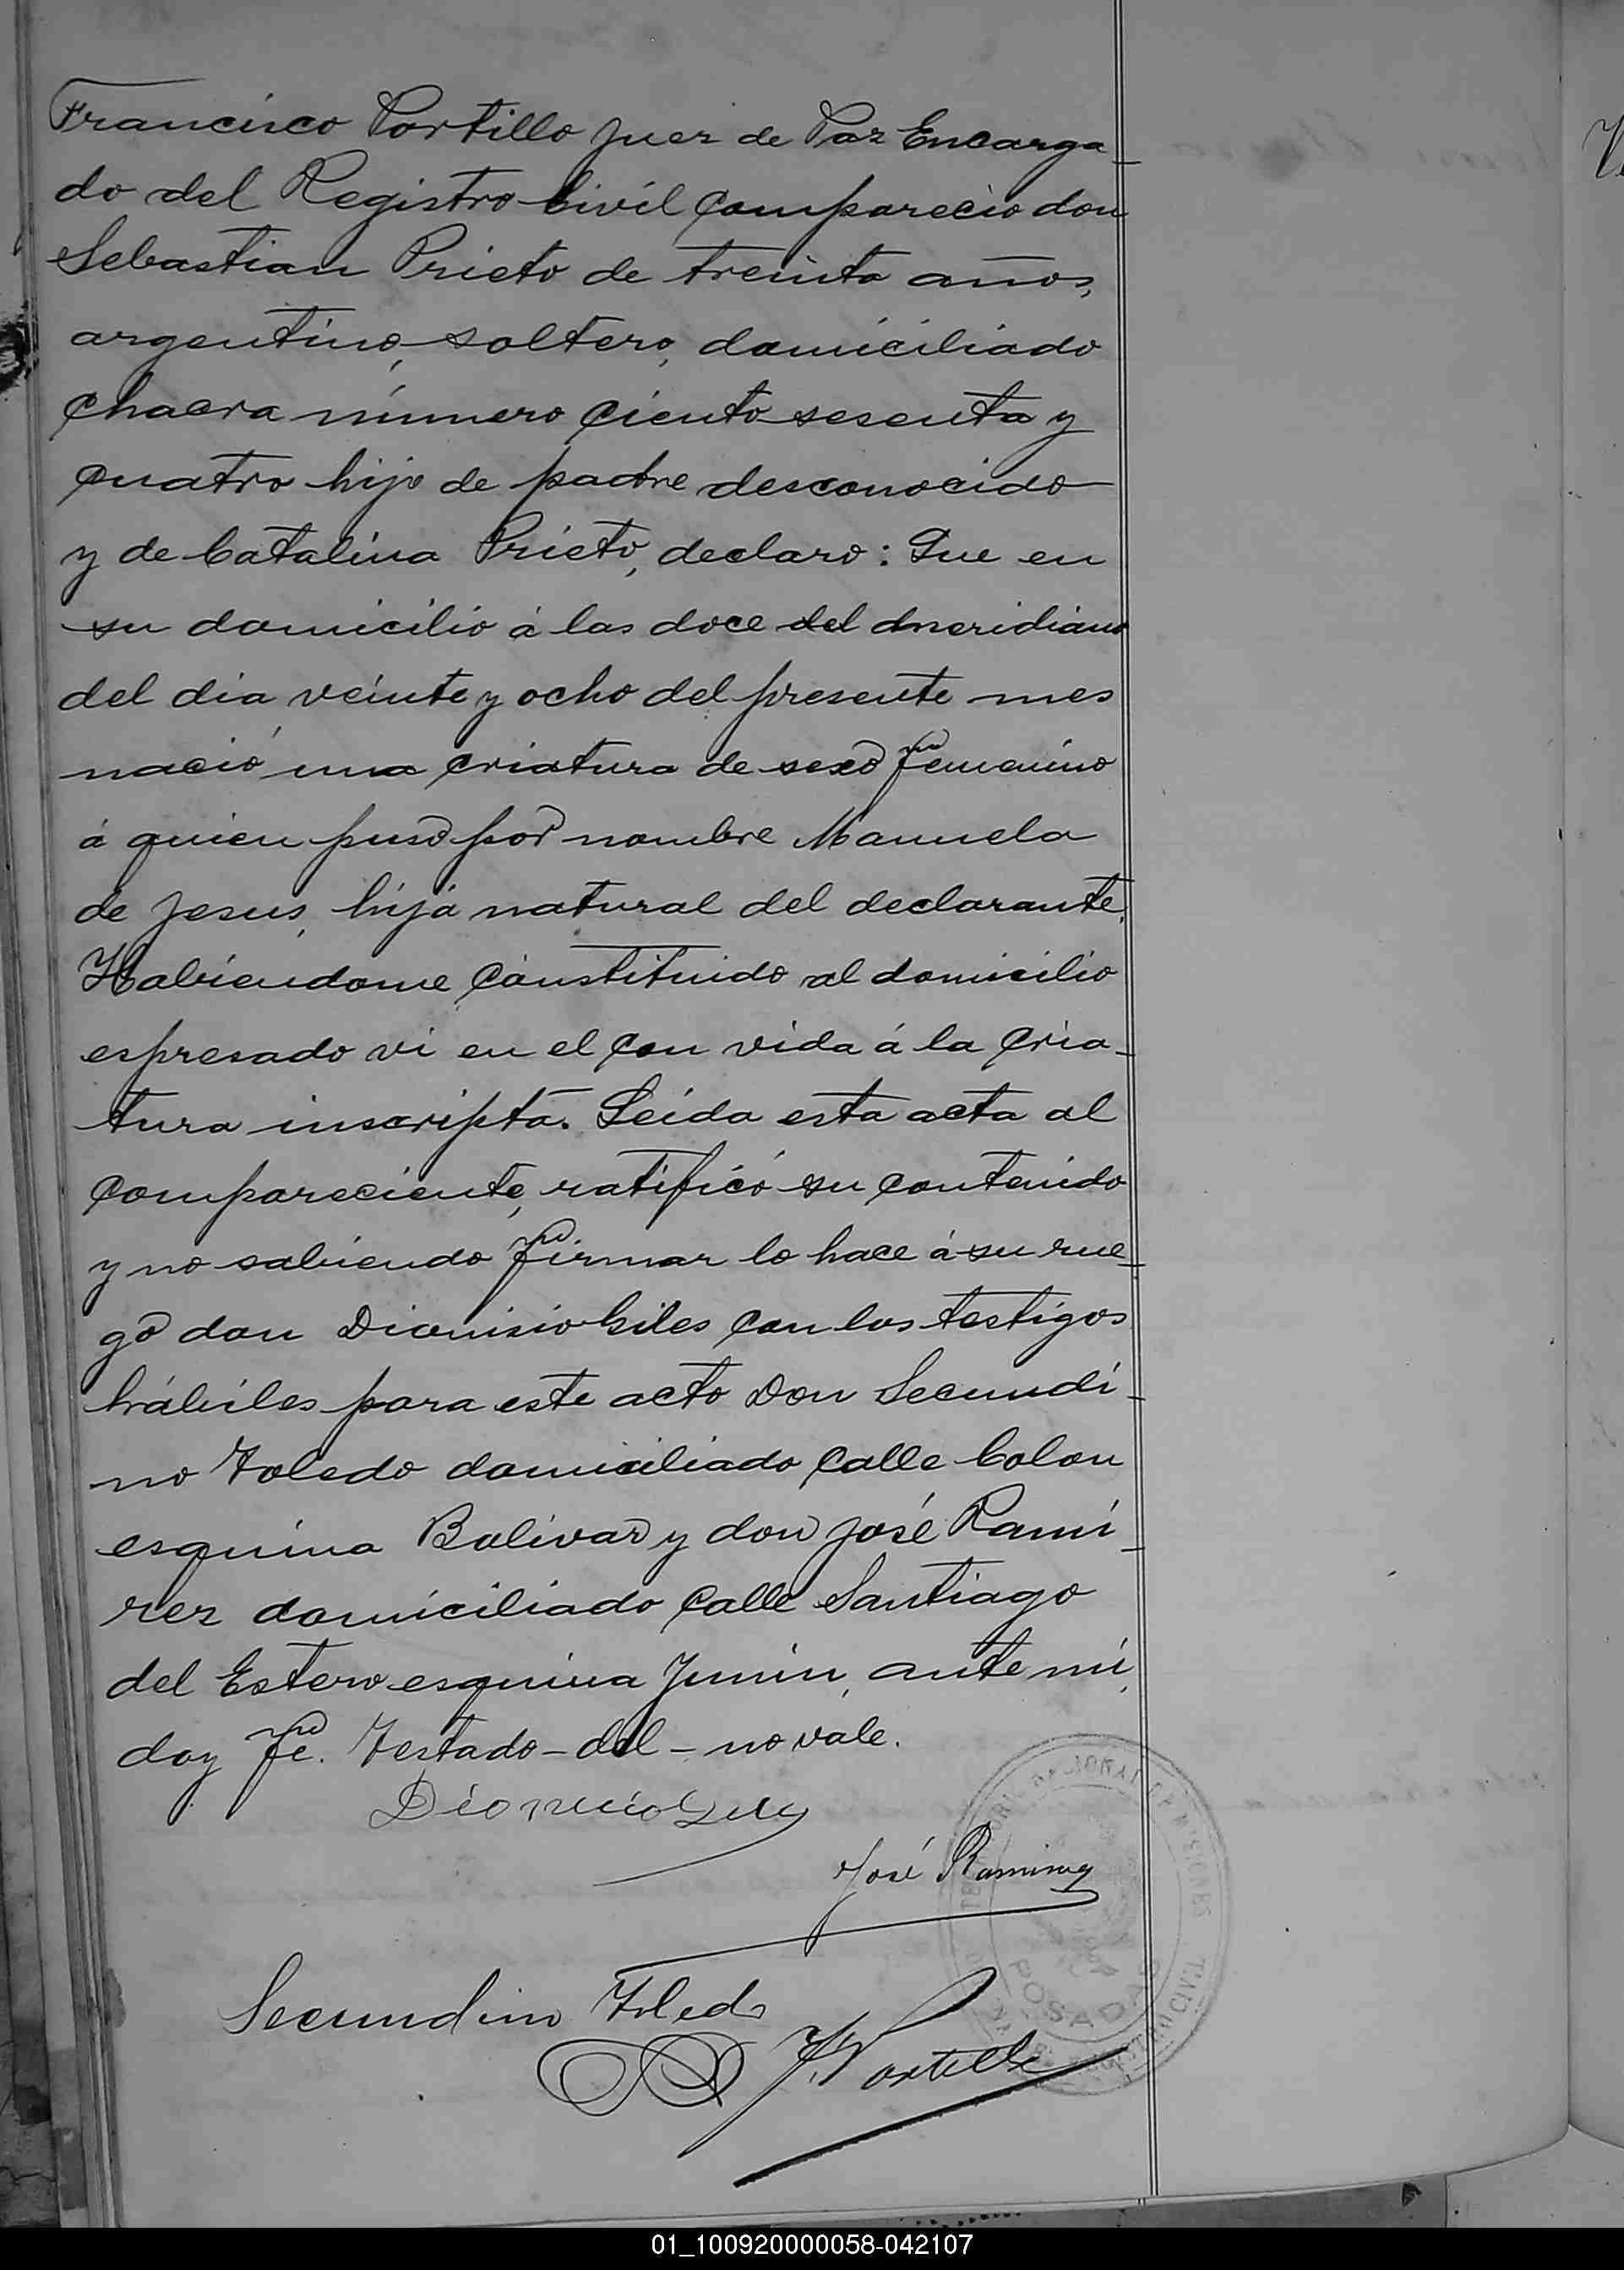 Francisco Portillo Juez de Paz Encarga-
do del Registro Civil compareció don
Sebastian Prieto de treinta años,
argentino, soltero, domiciliado
chacra número ciento sesenta y
cuatro hijo de padre desconocido
y de Catalina Prieto, declaro: Que en
su domicilio á las doce del meridiano
del dia veinte y ocho del presente mes
nació una criatura de sexo femenino
á quien puso por nombre Manuela
de Jesus, hija natural del declarante.
Habiendome constituido al domicilio
espresado vi en el con vida á la cria-
tura inscripta. Leida esta acta al
compareciente, ratificó su contenido
y no sabiendo firmar lo hace á su rue-
go don Dionisio Giles con los testigos
hábiles para este acto Don Secundi-
no Toledo domiciliado calle Colon
esquina Bolivar y don José Rami-
rez domiciliado calle Santiago
del Estero esquina Junin, ante mi,
doy fe. Testado - del - no vale.
Dionicio
José Ramirez
Secundino Toledo
F. Portillo
POSADAS
01_100920000058-042107